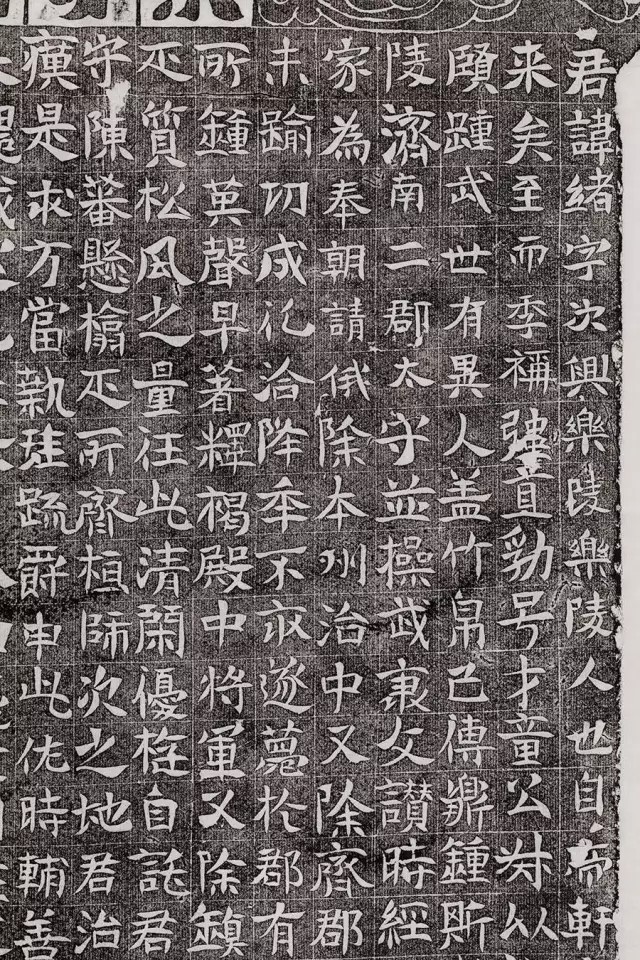 君諱緒字次興樂陵樂陵人也自帝軒
来矣至而季稱彊直勁号才童公叔以
頤踵武世有異人盖竹帛已傳鼎鍾斯
陵濟南二郡太守並操武兼文讚時經
家為奉朝請俄除本州治中又除齊郡
未踰功成化洽降年不永遂薨於郡有
所鍾英聲早著釋褐殿中將軍又除鎮
丕質松風之量在此清閑優遊自託君
守陳蕃懸榻丕所齊桓師次之地君治
瘼是求方當執珪疏爵申此佐時輔善